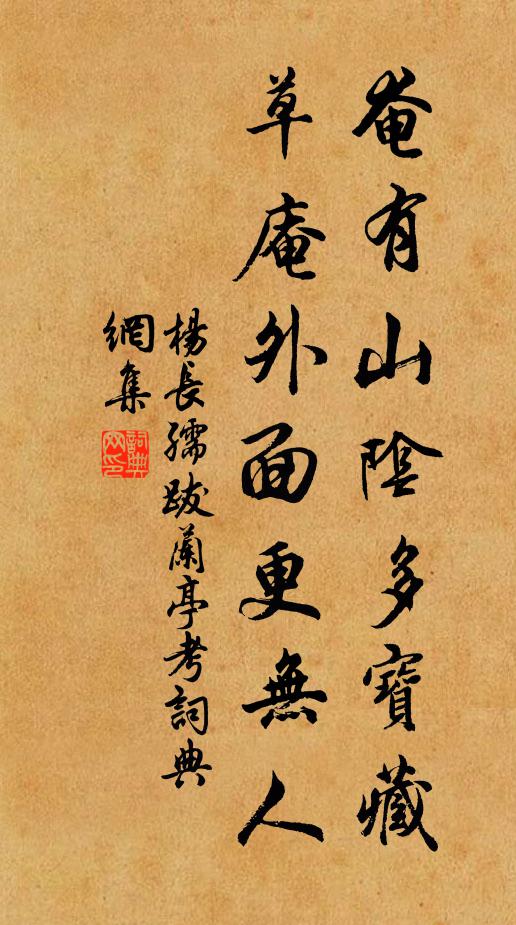 奄有山陰多寶藏
草庵外面更無人
楊長孺跋蘭亭考詞典
網集
詞典網印